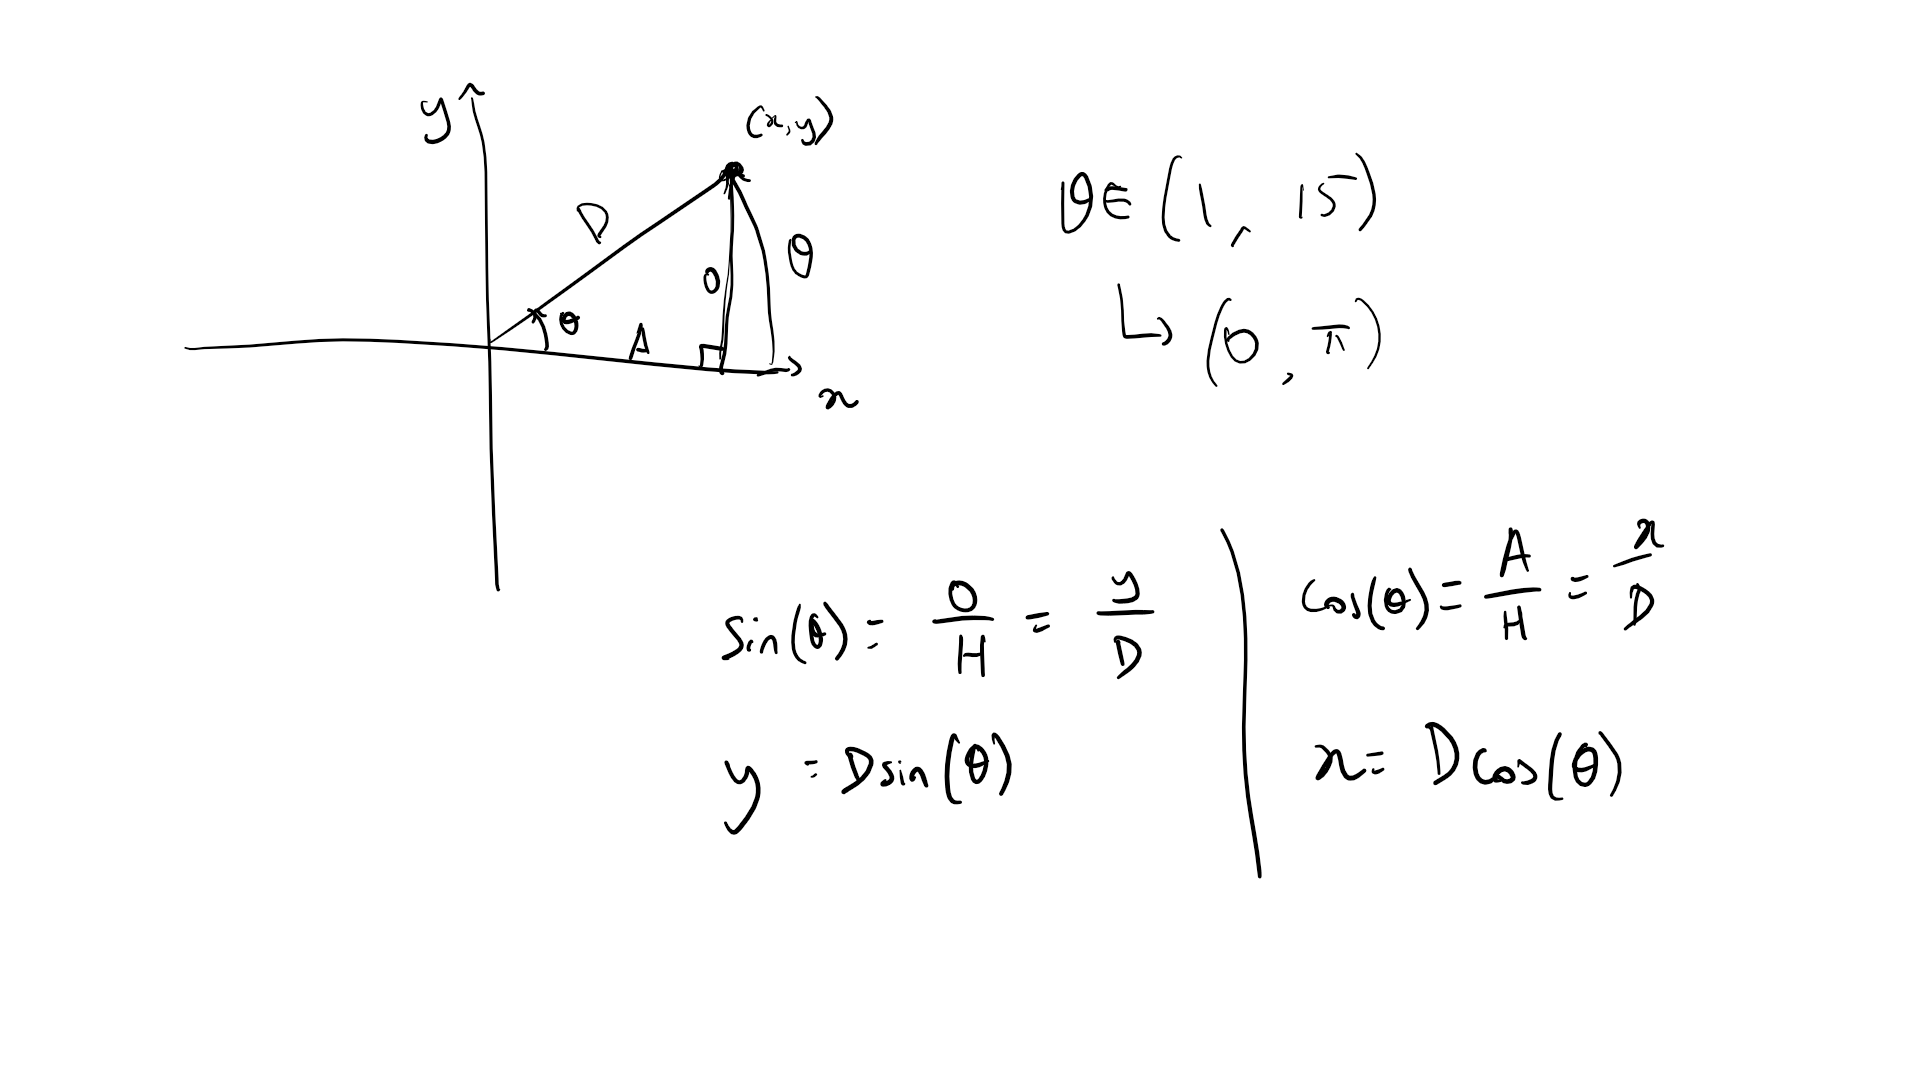 y
(x,y)
D
O
θ
θ
A
x
θ∈ (1, 15)
↳ (0, π)
Sin(θ) = O/H = y/D
y = Dsin(θ)
Cos(θ) = A/H = x/D
x = DCos(θ)